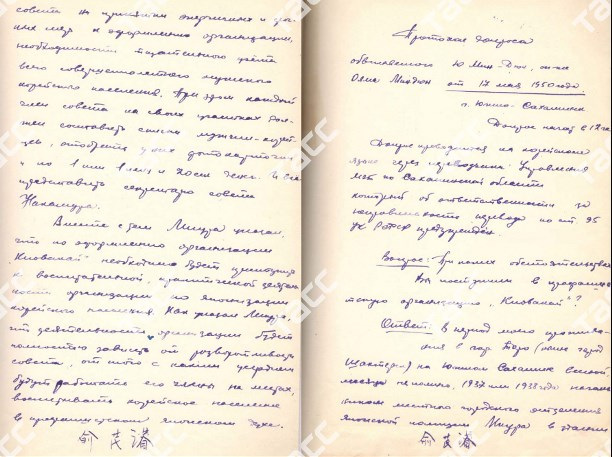 совета на принятии энергичных и
мер к оформлению организации,
необходимости тщательного учёта
всего совершеннолетнего мужского
корейского населения. При этом каждый
член совета на своих участках дол-
жен составить списки мужчин-корей-
цев, отобрать у них фотокарточки
и по 1 или 1 иен и 20 сен денег. И все
представить секретарю совета
Накамура.
Вместе с тем Миура указал,
что по оформлению организации
"Киовакай" необходимо будет приступить
к воспитательной, практической деятель-
ности организации по японизации
корейского населения. Как указал Миура,
эта деятельность организации будет
полностью зависеть от руководителей
совета, от того с каким усердием
будут работать его члены на местах,
воспитывать корейское население
в преданности японском духе.
俞茂濬
Протокол допроса
обвиняемого Ю Мин-Дюн, он же
Ояма Миндюн от 17 мая 1950 года.
г. Южно-Сахалинск
Допрос начат в 12 час
Допрос производится на корейском
языке через переводчика Управления
МГБ по Сахалинской области
который об ответственности за
неправильность перевода по ст. 95
УК РСФСР предупреждён.
Вопрос: При каких обстоятельствах
Вы поступили в
организацию "Киовакай"?
Ответ: В период моего прожива-
ния в гор. Торо (ныне город
Шахтерск) на Южном Сахалине
месяца не помню, 1937 или 1938 года началь-
ником местного городского отделения
японской полиции Миура в здании
俞茂濬